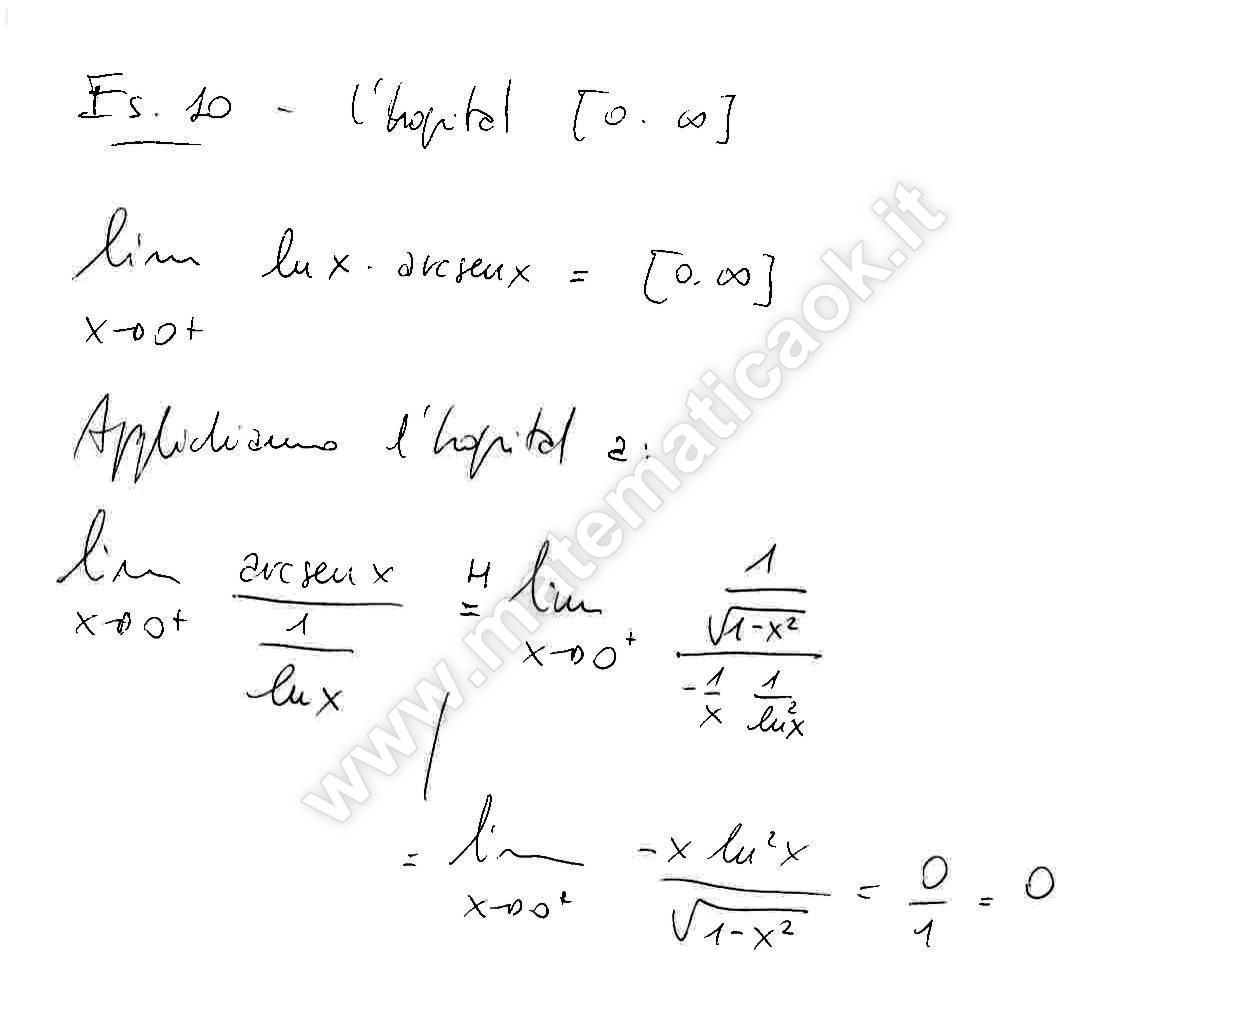 Es. 10 - l'hopital [0. ∞]
lim ln x · arcsen x = [0. ∞]
x→0+
Applichiamo l'hopital a:
lim arcsen x / (1 / ln x) =ᴴ lim (1 / √(1-x²)) / (-1/x 1/ln²x)
x→0+ x→0+
= lim -x ln²x / √(1-x²) = 0/1 = 0
x→0+
www.matematicaok.it